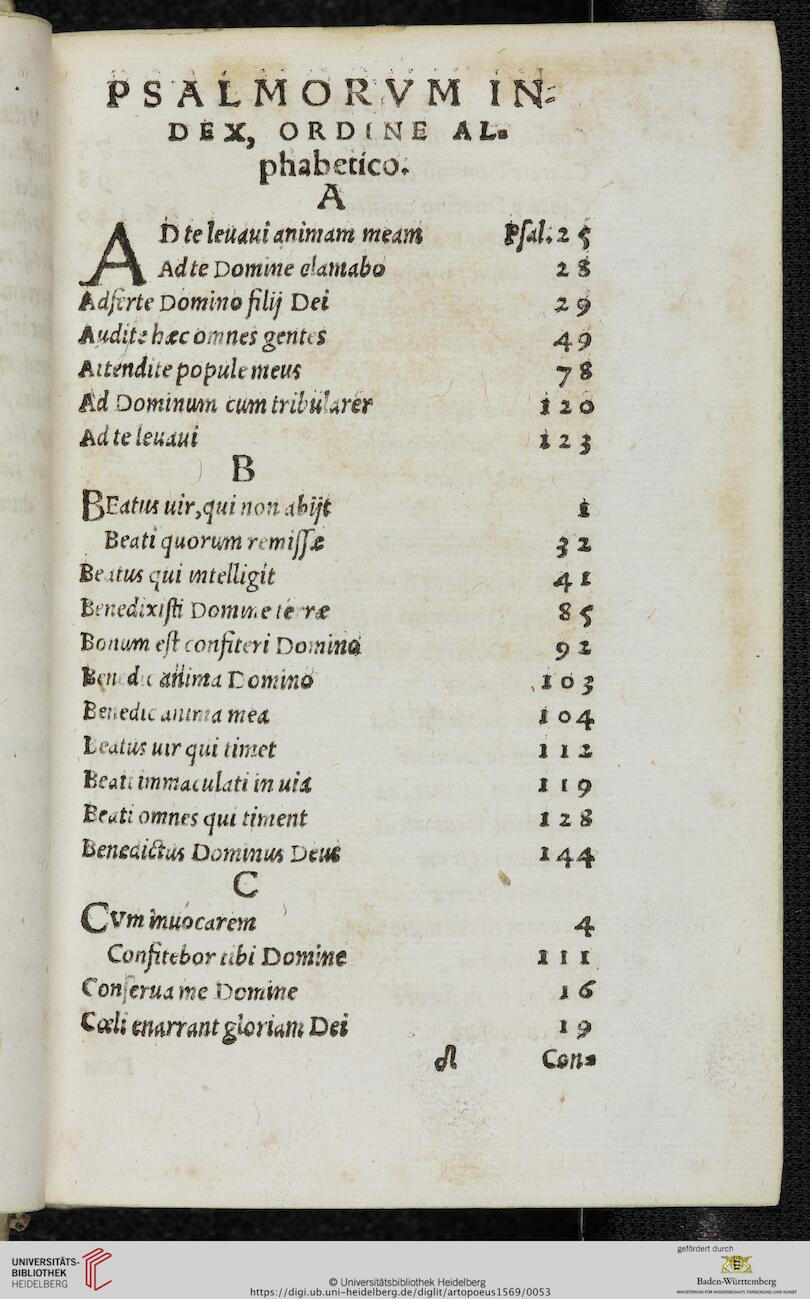 PSALMORVM IN-
DEX, ORDINE AL-
phabetico.
A
AD te leuaui animam meam Psal. 25
Ad te Domine clamabo 28
Adferte Domino filij Dei 29
Audite hæc omnes gentes 49
Attendite popule meus 78
Ad Dominum cum tribularer 120
Ad te leuaui 123
B
BEatus uir, qui non abijt 1
Beati quorum remissæ 32
Beatus qui intelligit 41
Benedixisti Domine terræ 85
Bonum est confiteri Domino 92
Benedic anima Domino 103
Benedic anima mea 104
Beatus uir qui timet 112
Beati immaculati in uia 119
Beati omnes qui timent 128
Benedictus Dominus Deus 144
C
CVm inuocarem 4
Confitebor tibi Domine 111
Conserua me Domine 16
Cœli enarrant gloriam Dei 19
Con-
UNIVERSITÄTS-
BIBLIOTHEK
HEIDELBERG
© Universitätsbibliothek Heidelberg
https://digi.ub.uni-heidelberg.de/diglit/artopoeus1569/0053
gefördert durch
Baden-Württemberg
MINISTERIUM FÜR WISSENSCHAFT, FORSCHUNG UND KUNST